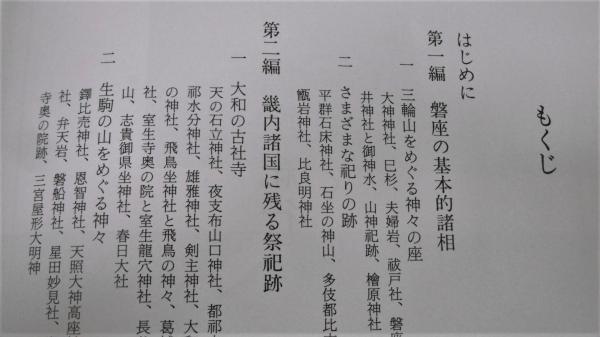 もくじ
はじめに
第一編 磐座の基本的諸相
一 三輪山をめぐる神々の座
大神神社、巳杉、夫婦岩、祓戸社、磐座
井神社と御神水、山神祀跡、檜原神社
二 さまざまな祀りの跡
平群石床神社、石坐の神山、多伎都比古
甑岩神社、比良明神社
第二編 畿内諸国に残る祭祀跡
一 大和の古社寺
天の石立神社、夜支布山口神社、都祁
祁水分神社、雄雅神社、剣主神社、大
の神社、飛鳥坐神社と飛鳥の神々、葛
社、室生寺奥の院と室生龍穴神社、長
山、志貴御県坐神社、春日大社
二 生駒の山をめぐる神々
鐸比売神社、恩智神社、天照大神高座
社、弁天岩、磐船神社、星田妙見社、
寺奥の院跡、三宮屋形大明神